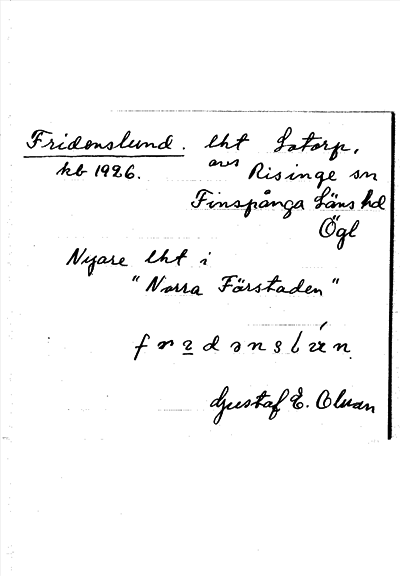 Fridenslund. lht Lotorp,
kb 1926. avs Risinge sn
Finspånga Läns hd
Ögl
Nyare lht i
"Norra Förstaden"
Gustaf E. Olman